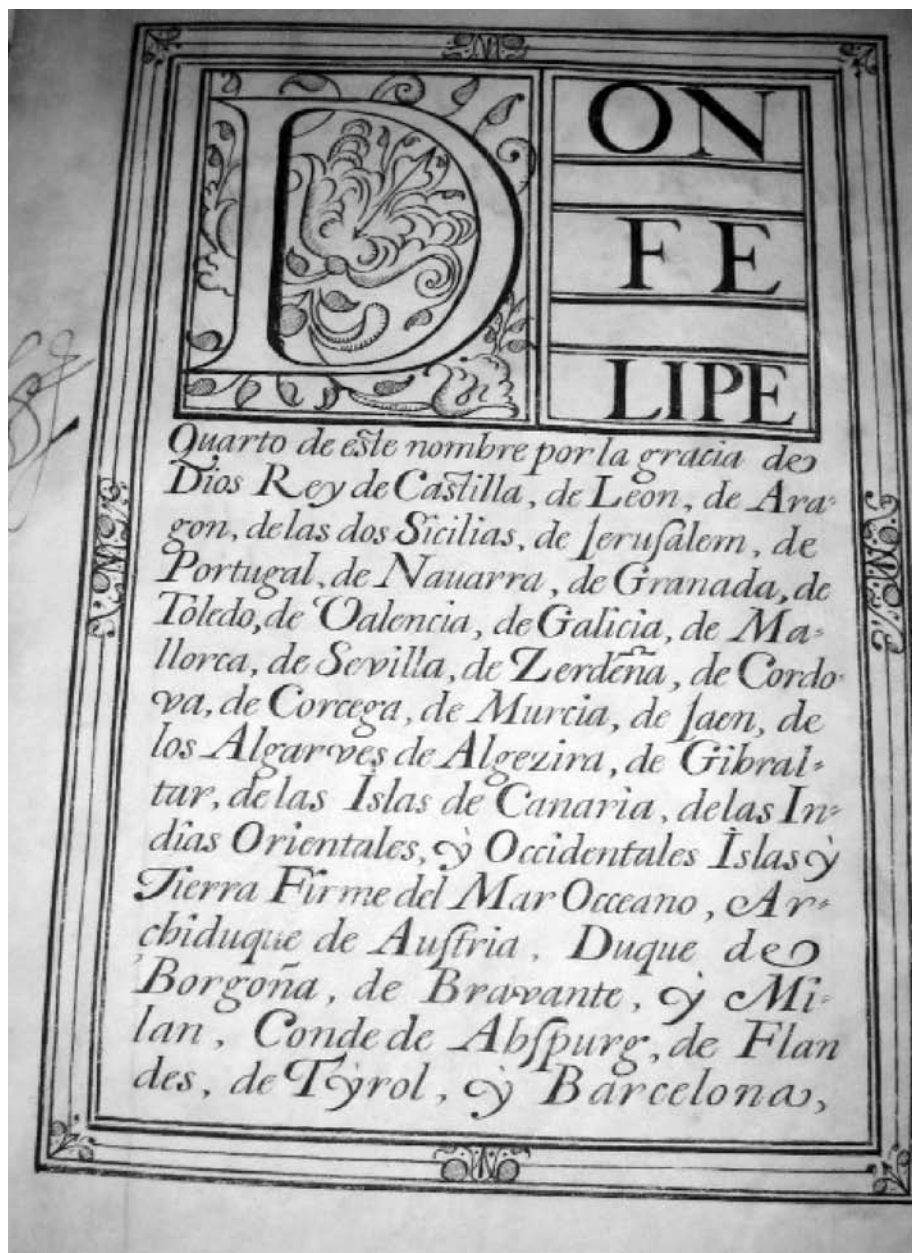 DON
FE
LIPE
Quarto de este nombre por la gracia de
Dios Rey de Castilla, de Leon, de Ara-
gon, de las dos Sicilias, de Jeruſalem, de
Portugal, de Nauarra, de Granada, de
Toledo, de Valencia, de Galicia, de Ma-
llorca, de Sevilla, de Zerdeña, de Cordo-
va, de Corcega, de Murcia, de Jaen, de
los Algarves de Algezira, de Gibral-
tar, de las Islas de Canaria, de las In-
dias Orientales, ÿ Occidentales Islas ÿ
Tierra Firme del Mar Occeano, Ar-
chiduque de Auſtria, Duque de
Borgoña, de Bravante, ÿ Mi-
lan, Conde de Abſpurg, de Flan
des, de Tÿrol, ÿ Barcelona,